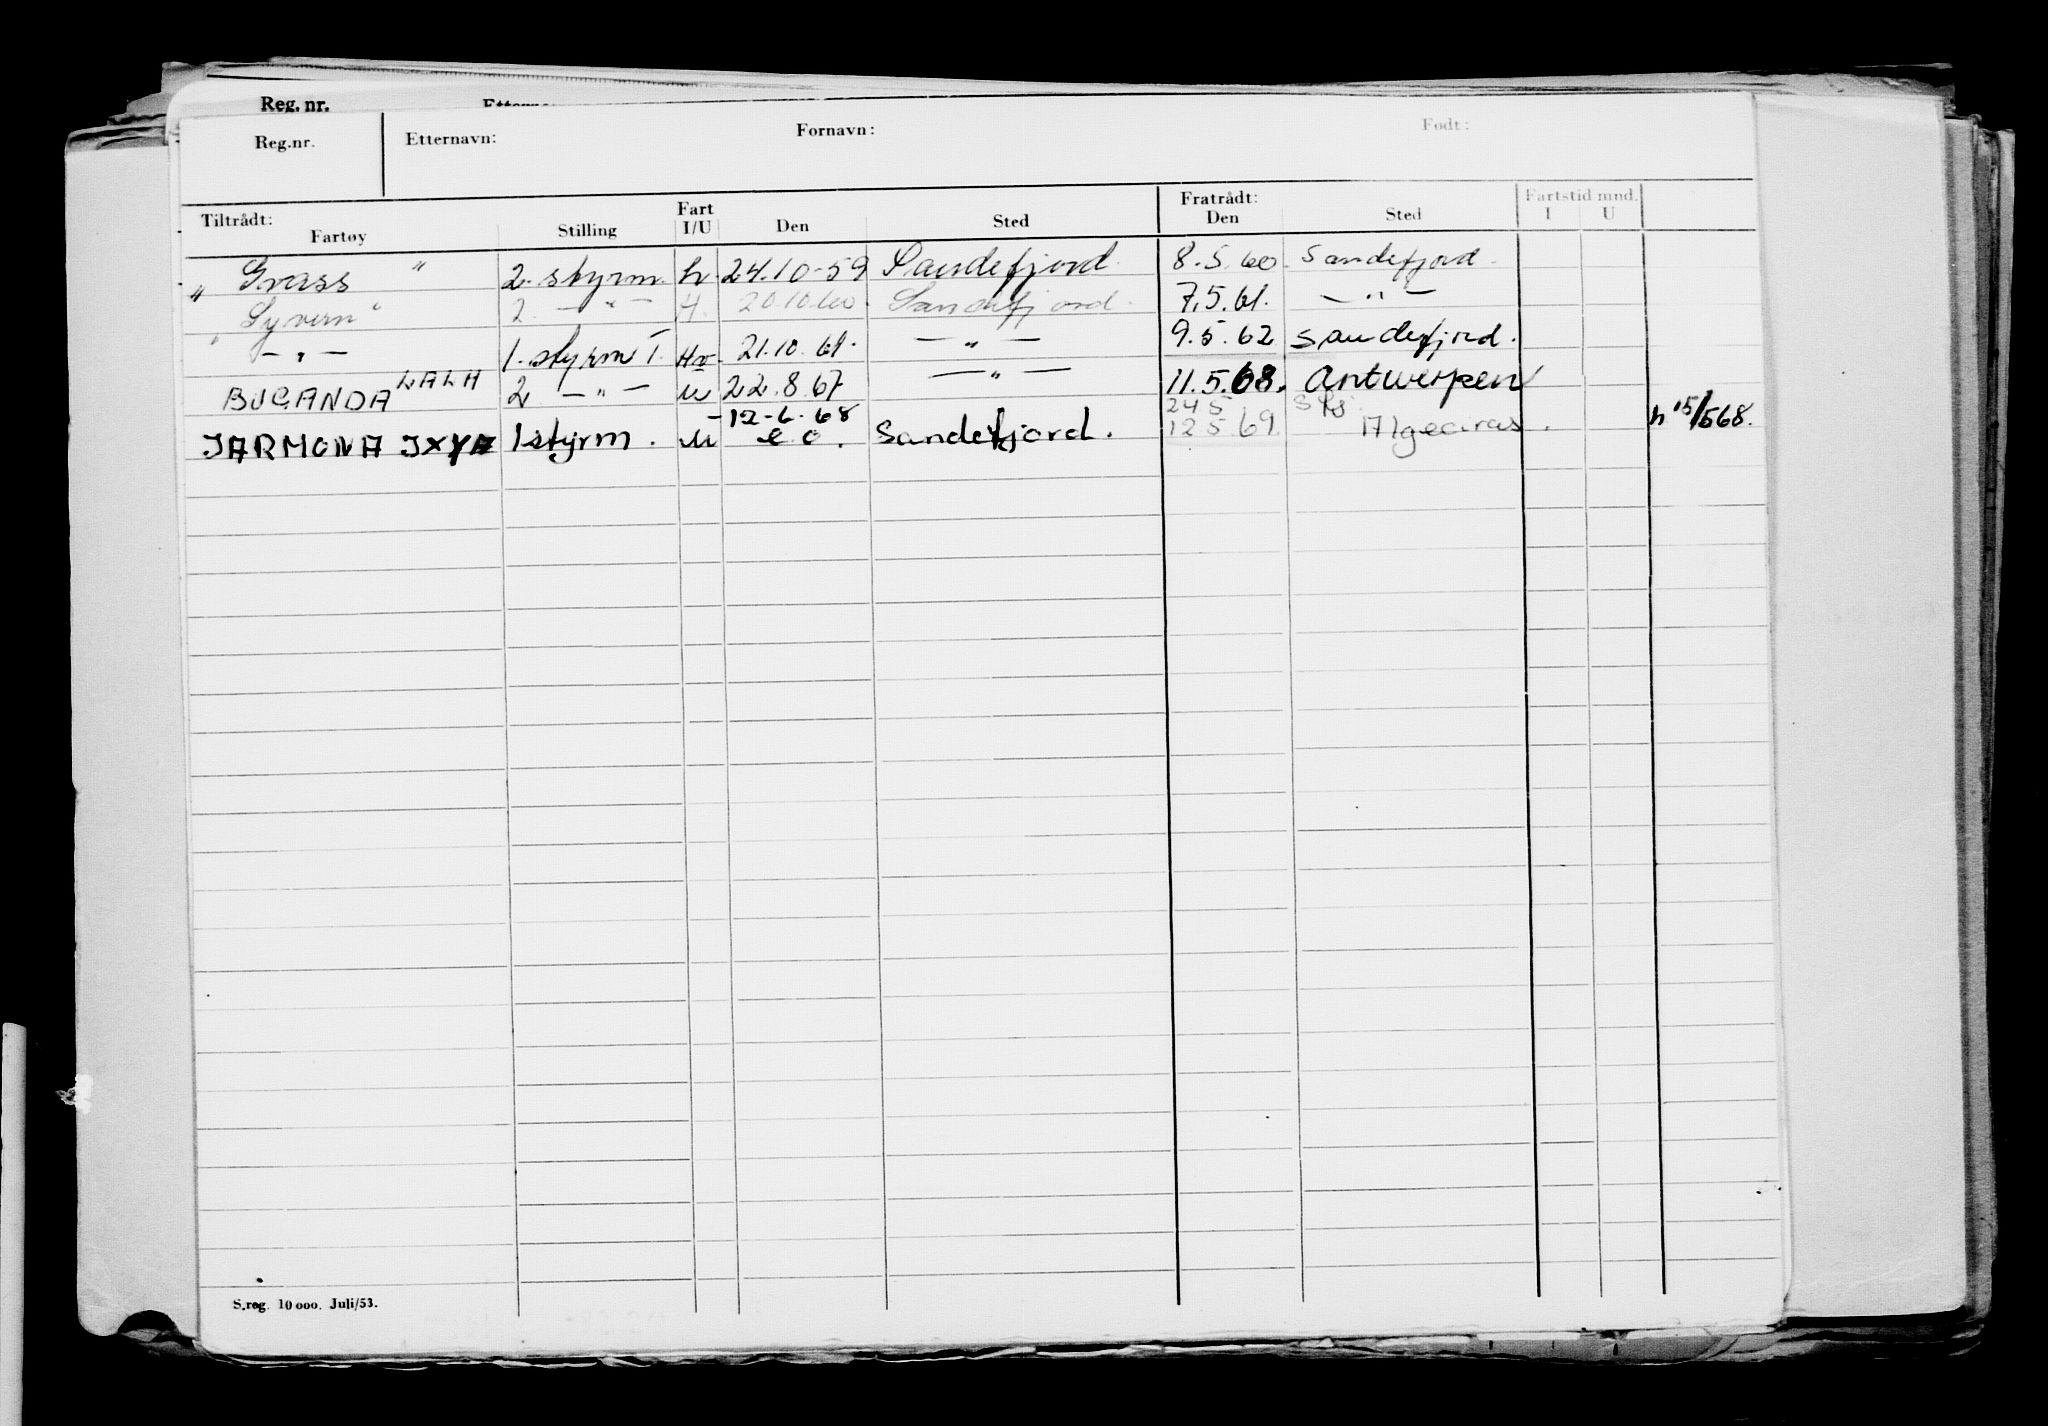 Reg. nr.
Reg.nr. Etternavn: Fornavn: Født:
Tiltrådt: Fartøy Stilling Fart I/U Den Sted Fratrådt: Den Sted Fartstid mnd. I U
" Grass " 2. styrm. h. 24.10-59 Sandefjord 8.5.60 Sandefjord
" Syvern " 2. — " — H. 20.10.60. Sandefjord. 7.5.61. — " —
— " — 1. styrm I. Hv. 21.10.61. — " — 9.5.62 Sandefjord.
BUGANDA LALH 2 — " — U 22.8.67 — " — 11.5.68. Antwerpen
JARMONA JXYA 1styrm. U 12-6.68 e.o. Sandefjord. 24 5 12 5 69. Algeciras. h 15/568.
S.reg. 10 000. Juli/53.